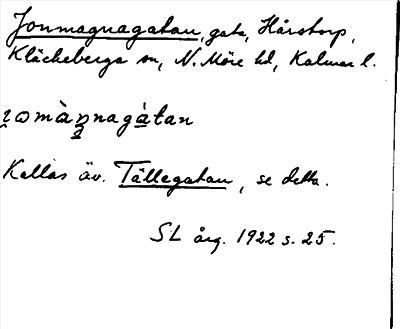 Jonmagnagatan, gata, Hårstorp,
Kläckeberga sn, N. Möre hd, Kalmar l.
Kallas äv. Tällegatan, se detta.
SL årg. 1922 s. 25.